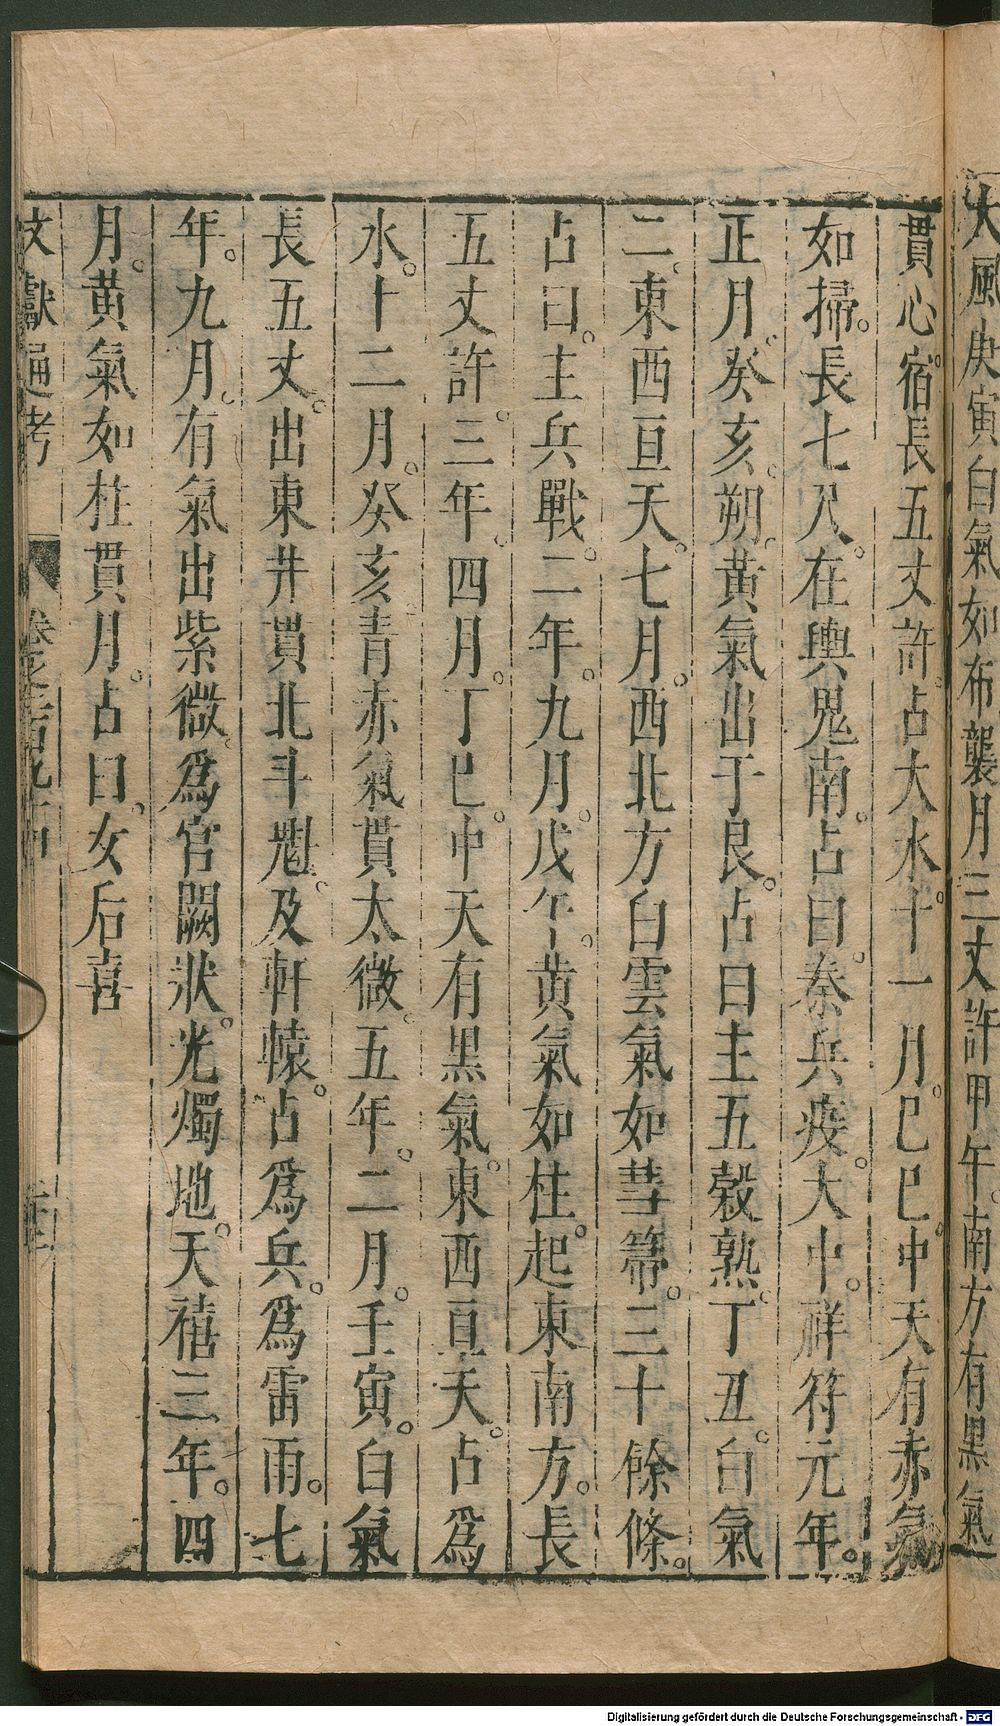 大風庚寅白氣如布襲月三丈許甲午。南方有黑氣
貫心宿。長五丈許。占大水。十一月。己巳。中天有赤氣
如掃。長七尺。在輿鬼南。占曰。秦兵疫。大中。祥符元年。
正月。癸亥。朔。黃氣出于艮。占曰主五穀熟。丁丑。白氣
二。東西亘天。七月。西北方白雲氣如彗箒。三十餘條。
占曰。主兵戰。二年。九月。戊午。黃氣如柱。起東南方。長
五丈許。三年。四月。丁巳。中天有黑氣。東西亘天。占爲
水。十二月。癸亥。青赤氣貫太微。五年。二月。壬寅。白氣
長五丈。出東井貫北斗魁。及軒轅。占爲兵。爲雷雨。七
年。九月。有氣出紫微。爲宮闕狀。光燭地。天禧三年。四
月。黃氣如柱貫月。占曰。女后喜
文獻通考 卷之二百九十四